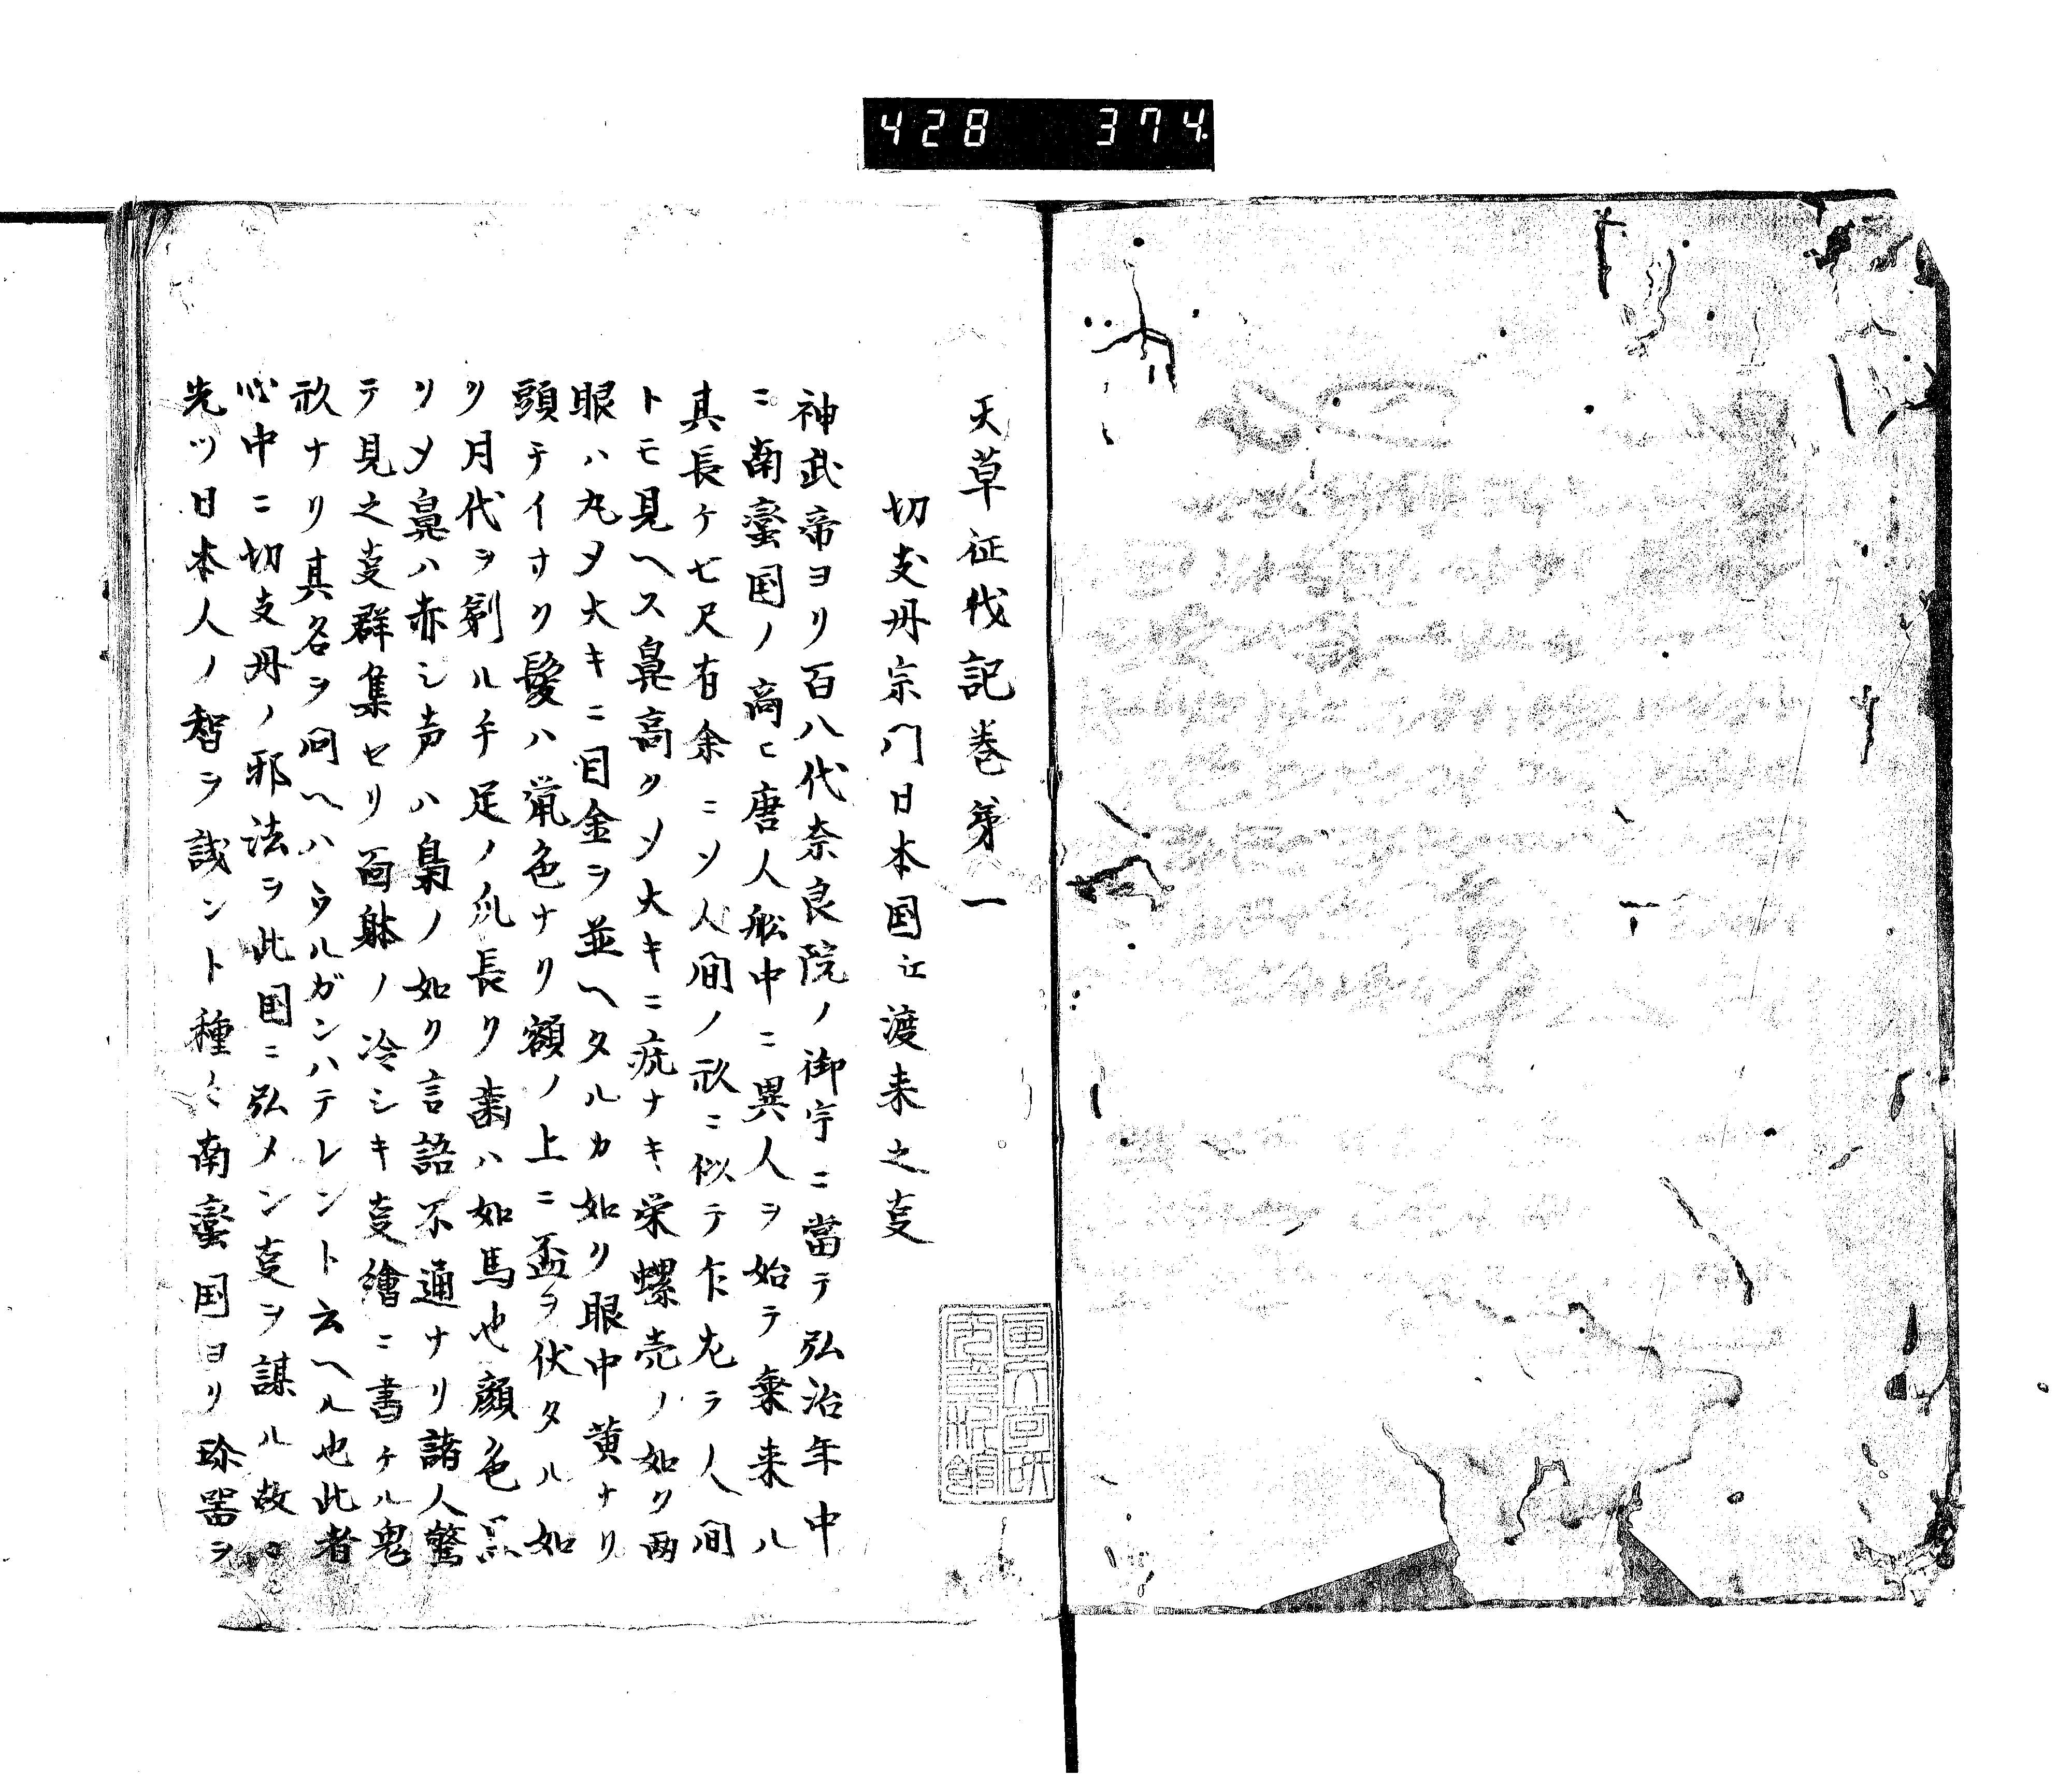 428 374
天草征伐記巻第一
切支丹宗門日本国江渡来之叓
神武帝ヨリ百八代奈良院ノ御宇ニ當テ弘治年中
ニ南蛮国ノ商ヒ唐人舩中ニ異人ヲ始テ乗来ル
其長ケ七尺有余ニ〆人間ノ形ニ似テ乍左ラ人間
トモ見ヘス鼻高ク〆大キニ疣ナキ栄螺売ノ如ク両
眼ハ丸〆大キニ目金ヲ並ヘタルカ如リ眼中黄ナリ
頭チイサク髪ハ鼠色ナリ額ノ上ニ盃ヲ伏タル如
ク月代ヲ剃ル手足ノ爪長ク歯ハ如馬也顔色黒
リ〆鼻ハ赤シ声ハ梟ノ如ク言語不通ナリ諸人驚
テ見之叓群集セリ面躰ノ冷シキ叓繪ニ書ケル鬼
形ナリ其名ヲ問ヘハウルガンハテレント云ヘル也此者
心中ニ切支丹ノ邪法ヲ此国ニ弘メン叓ヲ謀ル故ニ
先ツ日本人ノ智ヲ試ント種々南蛮国ヨリ珍器ヲ